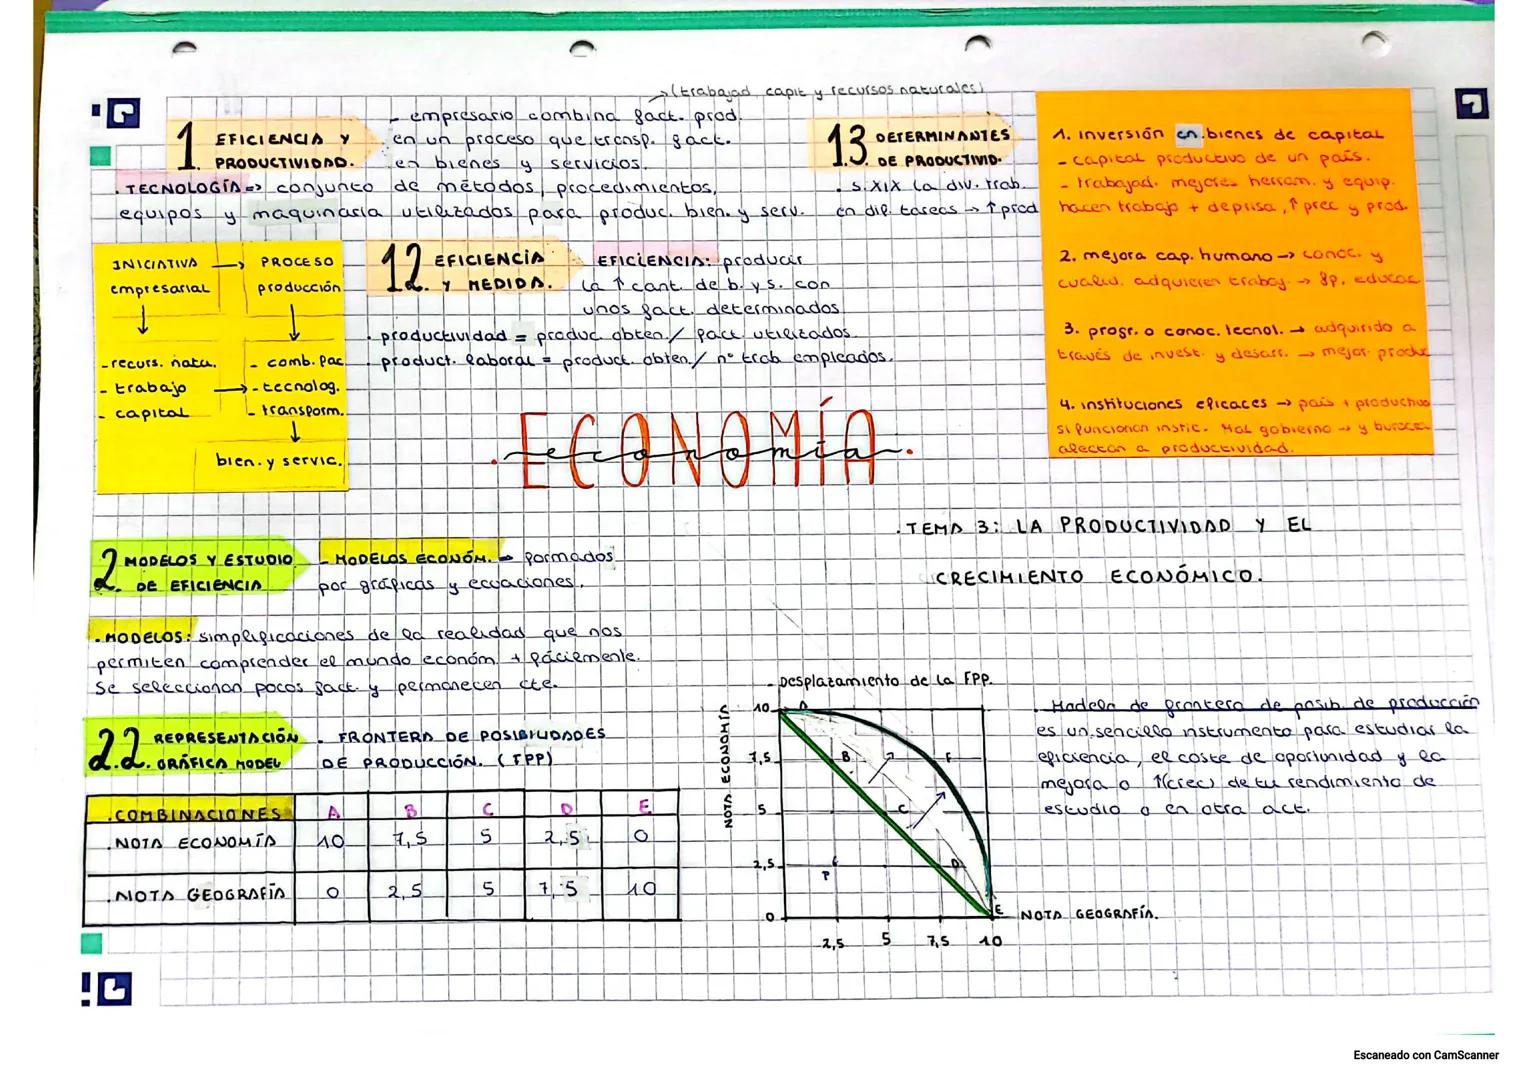 →(trabajad, capit y recursos naturales)
1. EFICIENCIA Y
PRODUCTIVIDAD.
- empresario combina fact. prod.
en un proceso que transf. fact.
en bienes y servicios.
. TECNOLOGÍA => conjunto de métodos, procedimientos,
equipos y maquinaria utilizados para produc. bien. y serv.
1.3. DETERMINANTES
DE PRODUCTIVID.
. S.XIX la div. trab.
en dif. tareas → ↑ prod
1. inversión en bienes de capital
- capital productivo de un país.
- trabajad. mejores herram. y equip.
hacen trabajo + deprisa, ↑ prec y prod.
2. mejora cap. humano → conoc. y
cualid. adquieren trabaj. → fp, educac
3. progr. o conoc. tecnol. → adquirido a
través de invest. y desarr. → mejor. produc
4. instituciones eficaces → país + productivo
si funcionan instic. Mal gobierno → y burocr
afectan a productividad.
INICIATIVA → PROCESO
empresarial producción
- recurs. natu. - comb. fac
- trabajo → - tecnolog.
- capital - transform.
bien. y servic.
1.2. EFICIENCIA
Y MEDIDA.
EFICIENCIA: producir
la ↑ cant. de b. y s. con
unos fact. determinados
. productividad = produc. obten. / fact. utilizados
. product. laboral = product. obten. / nº trab empleados.
ECONOMÍA
economía
. TEMA 3: LA PRODUCTIVIDAD Y EL
CRECIMIENTO ECONÓMICO.
2. MODELOS Y ESTUDIO
DE EFICIENCIA
- MODELOS ECONÓM. → formados
por gráficas y ecuaciones.
. MODELOS: simplificaciones de la realidad que nos
permiten comprender el mundo económ. + fácilmente.
Se seleccionan pocos fact. y permanecen cte.
2.2. REPRESENTACIÓN
GRÁFICA MODEL
. FRONTERA DE POSIBILIDADES
DE PRODUCCIÓN. (FPP)
. COMBINACIONES A B C D E
. NOTA ECONOMÍA 10 7,5 5 2,5 0
. NOTA GEOGRAFÍA 0 2,5 5 7,5 10
- Desplazamiento de la FPP.
NOTA ECONOMÍA
10 A
7,5 B F
5 C
2,5 D
P
0 E
NOTA GEOGRAFÍA.
2,5 5 7,5 10
. Modelo de frontera de posib. de producción
es un sencillo instrumento para estudiar la
eficiencia, el coste de oportunidad y la
mejora o ↑(crec) de tu rendimiento de
estudio o en otra act.
Escaneado con CamScanner